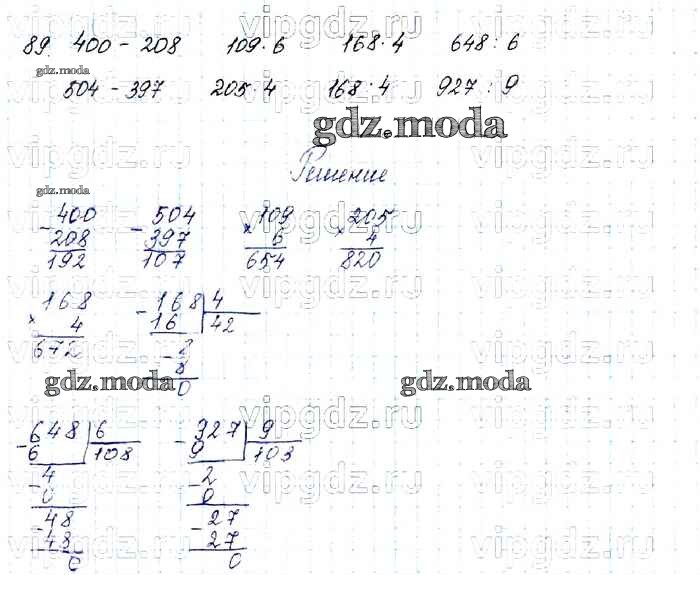 89. 400 - 208 109·6 168·4 648 : 6
gdz.moda
504 - 397 205·4 168 : 4 927 : 9
gdz.moda
Решение
gdz.moda
- 400 - 504 × 109 × 205
208 397 6 4
192 107 654 820
× 168 - 168 4
4 16 42
672 - 8
8
0
gdz.moda gdz.moda
- 648 6 - 927 9
6 108 9 103
- 4 - 2
0 0
- 48 - 27
48 27
0 0
vipgdz.ru